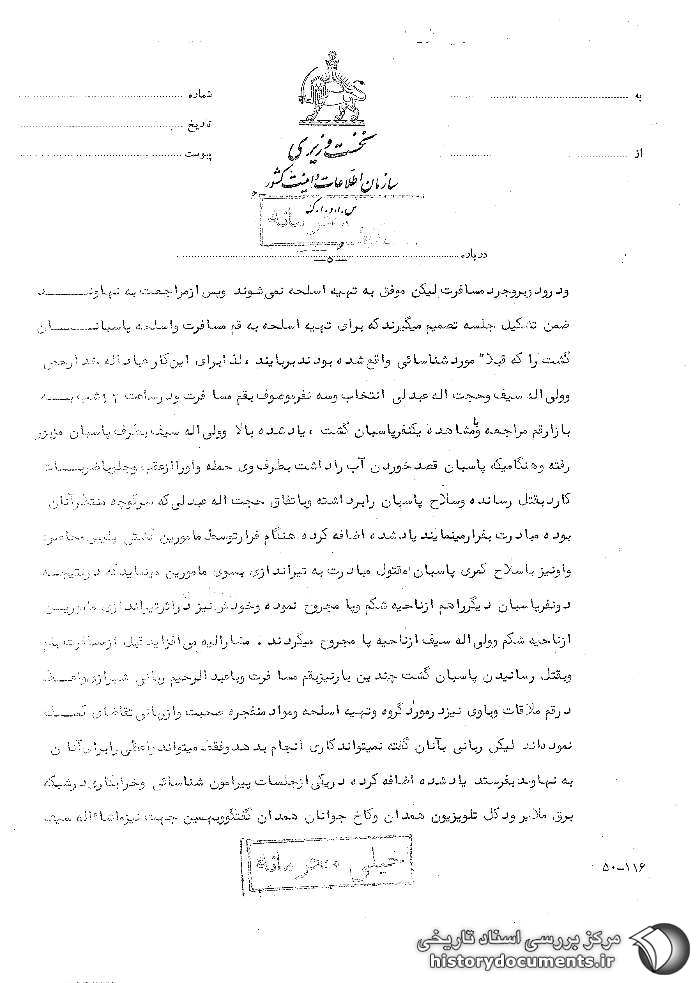 به
شماره
تاریخ
از
پیوست
نخست وزیری
سازمان اطلاعات و امنیت کشور
س.ا.و.ا.ک
درباره
ـ۵ـ
ودرود زبروجرد مسافرت لیکن موفق به تهیه اسلحه نمی‌شوند وپس ازمراجعت به نهاوند
ضمن تشکیل جلسه تصمیم میگیرند که برای تهیه اسلحه به قم مسافرت واسلحه پاسبانان
گشت را که قبلا" مورد شناسائی واقع شده بودند بربایند ، لذا برای این‌کار عباد اله خدارحمی
وولی اله سیف وحجت اله عبدلی انتخاب وسه نفرموصوف بقم مسافرت ودرساعت ۲ شب به
بازارقم مراجعه وبمشاهده یکنفرپاسبان گشت ، یادشده بالا وولی اله سیف بطرف پاسبان مزبور
رفته وهنگامیکه پاسبان قصد خوردن آب راداشت بطرف وی حمله واورا ازعقب وجلو باضربات
کارد بقتل رسانده وسلاح پاسبان رابرداشته وباتفاق حجت اله عبدلی که سرکوچه منتظرآنان
بوده مبادرت بفرارمینمایند یادشده اضافه کرده هنگام فرارتوسط مامورین گشتی پلیس محاصره
واونیز باسلاح کمری پاسبان مقتول مبادرت به تیراندازی بسوی مامورین مینماید که درنتیجه
دونفرپاسبان دیگرراهم ازناحیه شکم وپا مجروح نموده وخودش نیز دراثرتیراندازی مامورین
ازناحیه شکم وولی اله سیف ازناحیه پا مجروح میگردند . مشارالیه می افزاید قبل ازمسافرت بقم
وبقتل رسانیدن پاسبان گشت چندین بارنیزبقم مسافرت وباعبدالرحیم ربانی شیرازی واعظ
درقم ملاقات وباوی نیزدرمورد گروه وتهیه اسلحه ومواد منفجره صحبت وازربانی تقاضای کمک
نموده‌اند لیکن ربانی بآنان گفته نمیتواند کاری انجام بدهد وفقط میتواند واعظی رابرای آنان
به نهاوند بفرستد یادشده اضافه کرده دریکی ازجلسات پیرامون شناسائی وخرابکاری درشبکه
برق ملایر ودکل تلویزیون همدان وکاخ جوانان همدان گفتگووبهمین جهت نیزماشااله سیف
خیلی محرمانه
۵۰-۱۱۶
مرکز بررسی اسناد تاریخی
historydocuments.ir